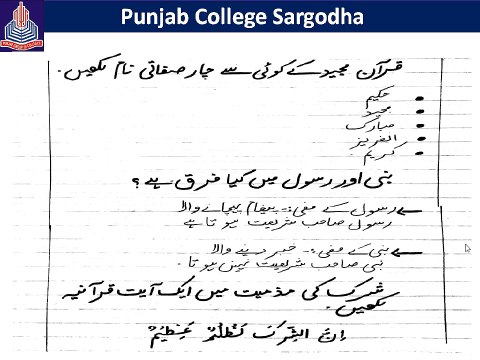 Punjab College Sargodha
قرآن مجید کے کوئی سے چار صفاتی نام لکھیں۔
حکیم
مجید
مبارک
العزیز
کریم
نبی اور رسول میں کیا فرق ہے؟
رسول کے معنی :- پیغام پہچانے والا
رسول صاحب شریعت ہوتا ہے
نبی کے معنی :- خبر دینے والا
نبی صاحب شریعت نہیں ہوتا۔
شرک کی مذمت میں ایک آیت قرآنیہ
لکھیں۔
اِنَّ الشِّرْکَ لَظُلْمٌ عَظِیْمٌ